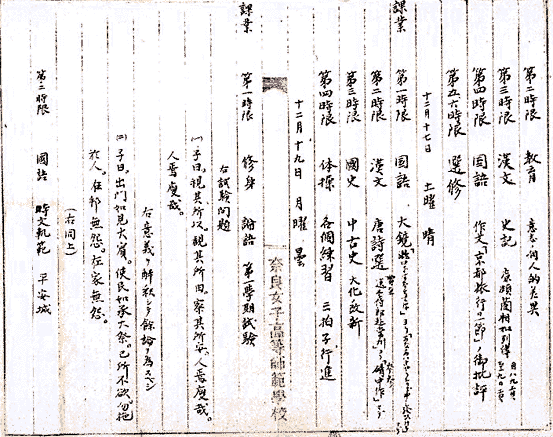 第二時限 教育 意志ノ個人的差異
第三時限 漢文 史記 廉頗藺相如列傳
第四時限 国語 作文「京都旅行の一節」ノ御批評
第五六時限 選修
十二月十七日 土曜 晴
課業 第一時限 国語 大鏡
第二時限 漢文 唐詩選
第三時限 國史 中古史 大化改新
第四時限 体操 各個練習 三拍子行進
十二月十九日 月曜 曇
奈良女子高等師範學校
課業 第一時限 修身 論語 第二學期試験
右試験問題
(一) 子曰、視其所以、観其所由、察其所安、人焉廋哉。
人焉廋哉。
右意義ヲ解釈シテ餘論ヲ為スベシ
(二) 子曰、出門如見大賓。使民如承大祭。己所不欲勿施
於人。在邦無怨。在家無怨。
(右同上)
第二時限 國語 時文軌範 平安城